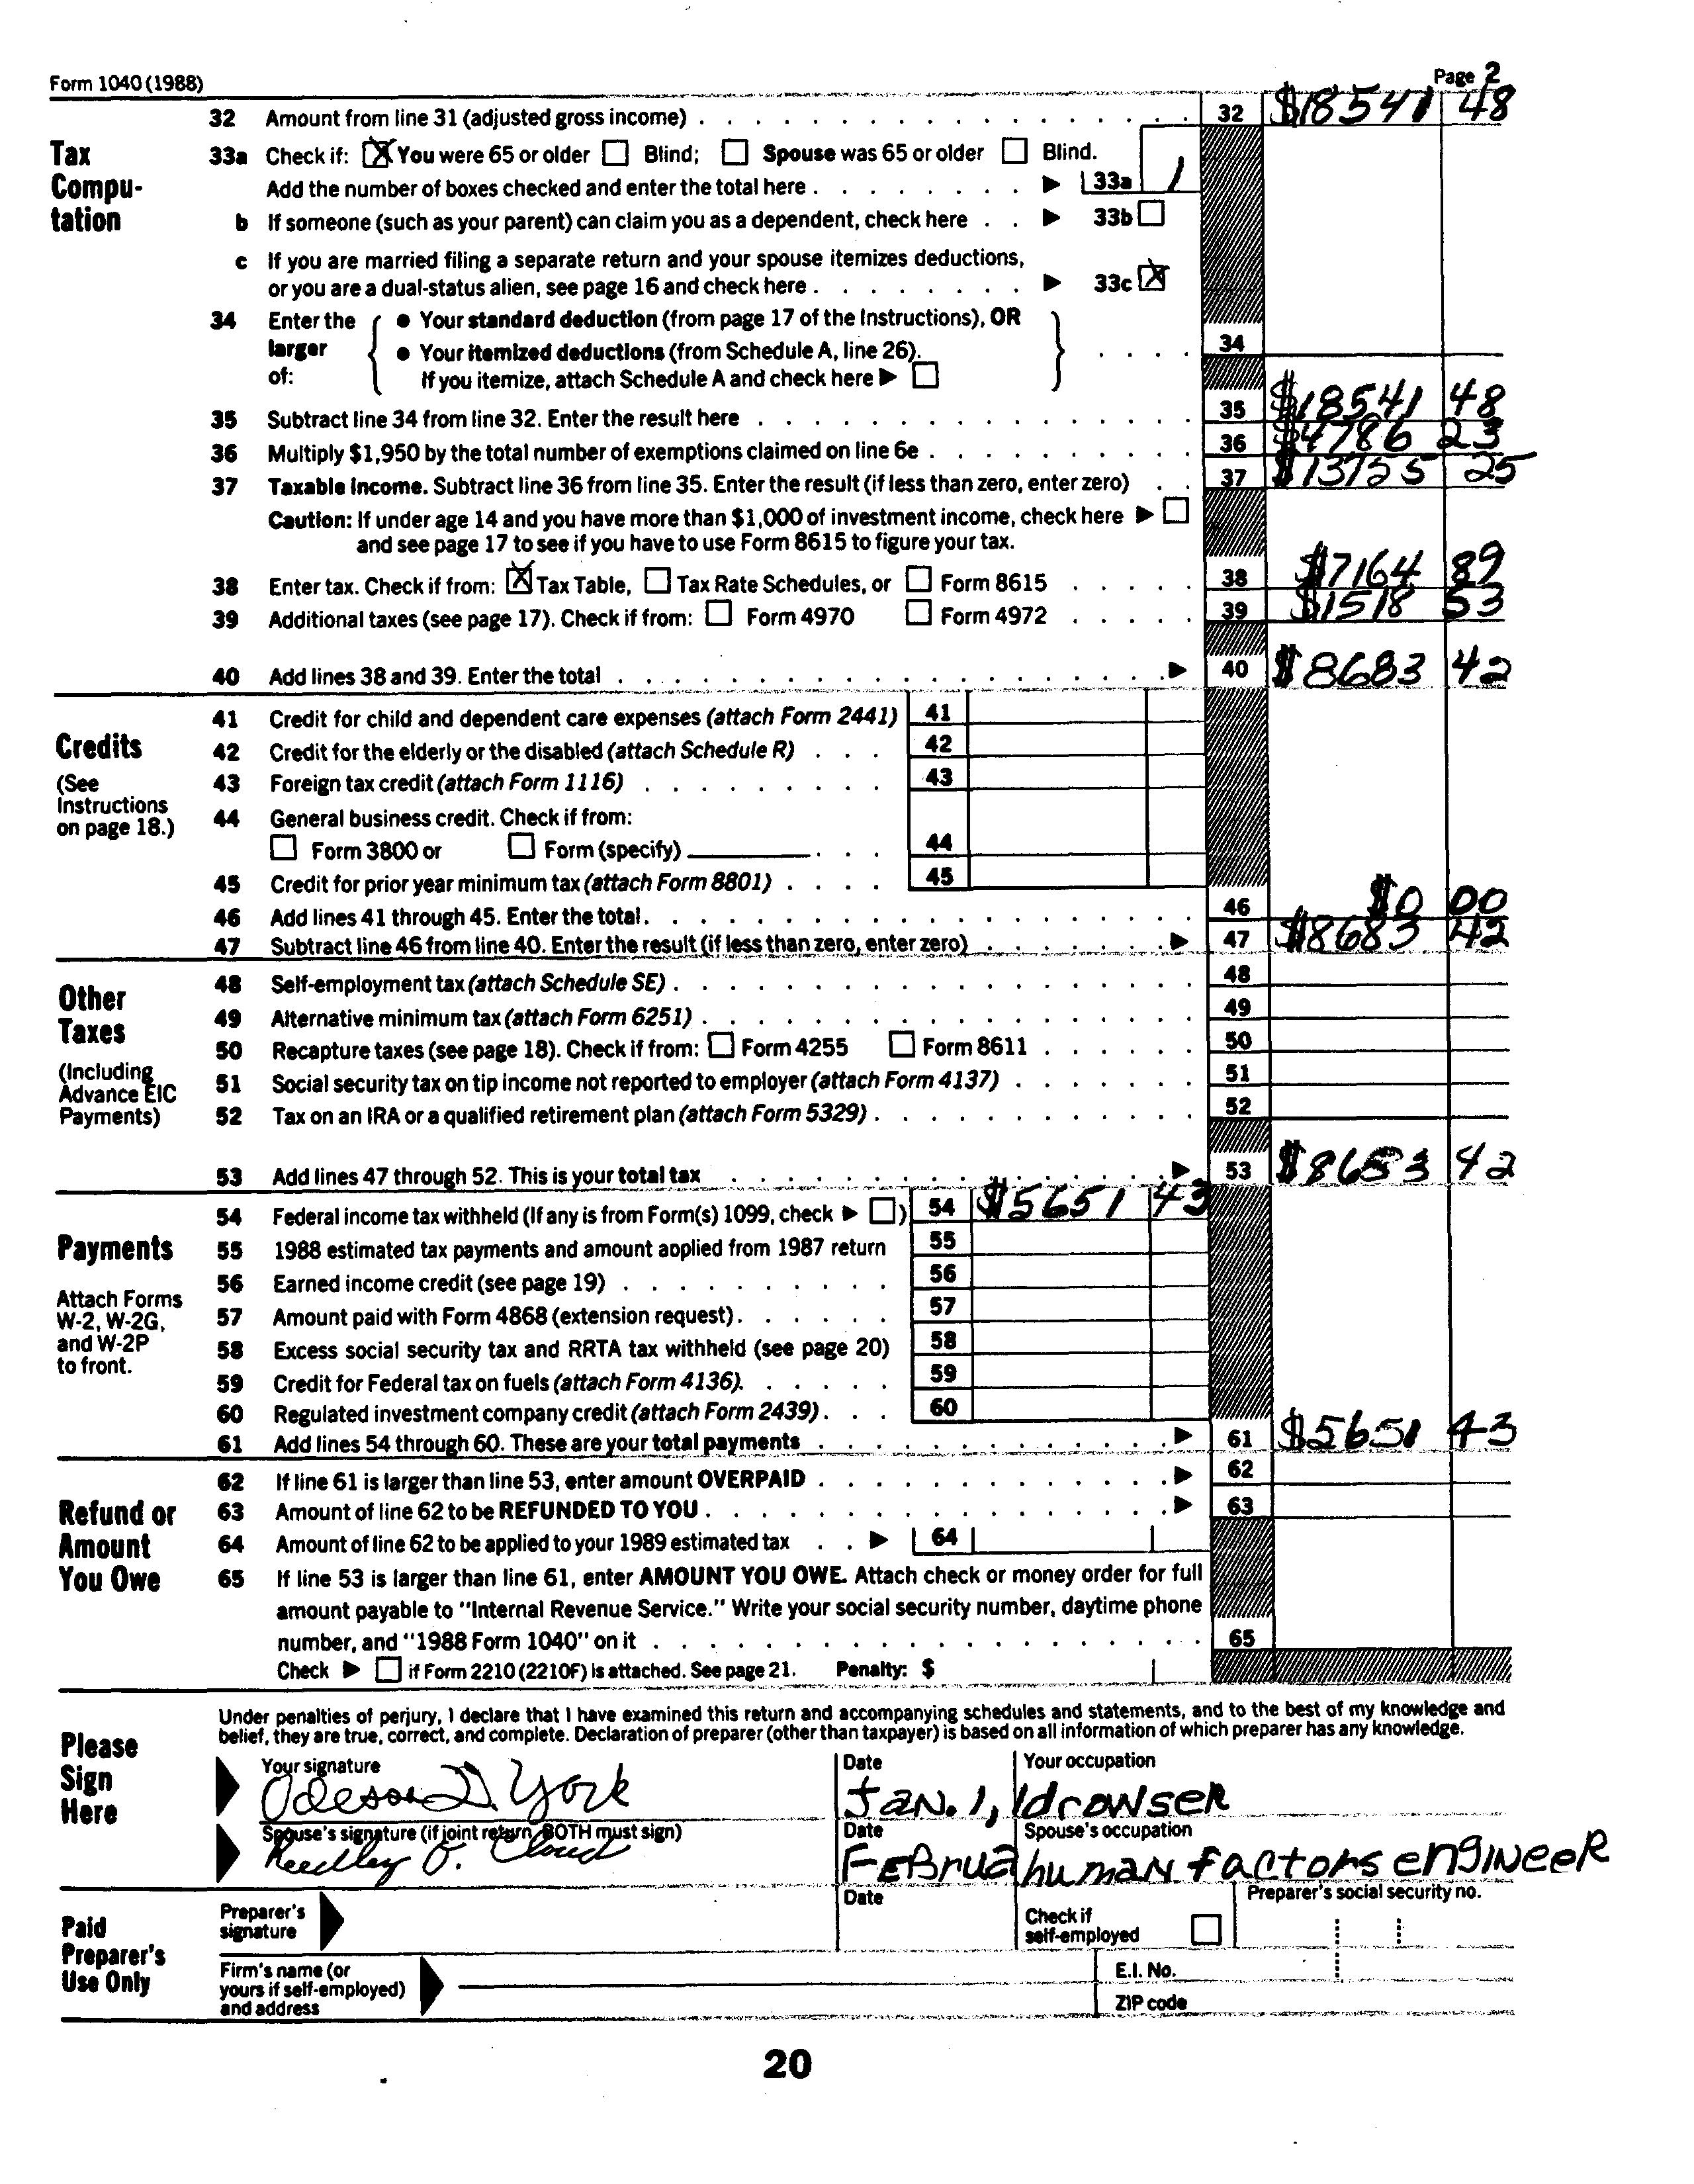 Form 1040 (1988) Page 2
32 Amount from line 31 (adjusted gross income) 32 $18541 48
Tax Compu- tation
33a Check if: X You were 65 or older Blind; Spouse was 65 or older Blind.
Add the number of boxes checked and enter the total here 33a 1
b If someone (such as your parent) can claim you as a dependent, check here 33b
c If you are married filing a separate return and your spouse itemizes deductions,
or you are a dual-status alien, see page 16 and check here 33c X
34 Enter the larger of:
• Your standard deduction (from page 17 of the Instructions), OR
• Your itemized deductions (from Schedule A, line 26).
If you itemize, attach Schedule A and check here
34
35 Subtract line 34 from line 32. Enter the result here 35 $18541 48
36 Multiply $1,950 by the total number of exemptions claimed on line 6e 36 $4786 23
37 Taxable Income. Subtract line 36 from line 35. Enter the result (if less than zero, enter zero) 37 $13755 25
Caution: If under age 14 and you have more than $1,000 of investment income, check here
and see page 17 to see if you have to use Form 8615 to figure your tax.
38 Enter tax. Check if from: X Tax Table, Tax Rate Schedules, or Form 8615 38 $7164 89
39 Additional taxes (see page 17). Check if from: Form 4970 Form 4972 39 $1518 53
40 Add lines 38 and 39. Enter the total 40 $8683 42
Credits
(See Instructions on page 18.)
41 Credit for child and dependent care expenses (attach Form 2441) 41
42 Credit for the elderly or the disabled (attach Schedule R) 42
43 Foreign tax credit (attach Form 1116) 43
44 General business credit. Check if from:
Form 3800 or Form (specify) 44
45 Credit for prior year minimum tax (attach Form 8801) 45
46 Add lines 41 through 45. Enter the total. 46 $0 00
47 Subtract line 46 from line 40. Enter the result (if less than zero, enter zero) 47 $8683 42
Other Taxes
(Including Advance EIC Payments)
48 Self-employment tax (attach Schedule SE) 48
49 Alternative minimum tax (attach Form 6251) 49
50 Recapture taxes (see page 18). Check if from: Form 4255 Form 8611 50
51 Social security tax on tip income not reported to employer (attach Form 4137) 51
52 Tax on an IRA or a qualified retirement plan (attach Form 5329) 52
53 Add lines 47 through 52. This is your total tax 53 $8683 42
Payments
Attach Forms W-2, W-2G, and W-2P to front.
54 Federal income tax withheld (If any is from Form(s) 1099, check ) 54 $5651 43
55 1988 estimated tax payments and amount applied from 1987 return 55
56 Earned income credit (see page 19) 56
57 Amount paid with Form 4868 (extension request) 57
58 Excess social security tax and RRTA tax withheld (see page 20) 58
59 Credit for Federal tax on fuels (attach Form 4136). 59
60 Regulated investment company credit (attach Form 2439) 60
61 Add lines 54 through 60. These are your total payments 61 $5651 43
Refund or Amount You Owe
62 If line 61 is larger than line 53, enter amount OVERPAID 62
63 Amount of line 62 to be REFUNDED TO YOU 63
64 Amount of line 62 to be applied to your 1989 estimated tax 64
65 If line 53 is larger than line 61, enter AMOUNT YOU OWE. Attach check or money order for full
amount payable to "Internal Revenue Service." Write your social security number, daytime phone
number, and "1988 Form 1040" on it 65
Check if Form 2210 (2210F) is attached. See page 21. Penalty: $
Please Sign Here
Under penalties of perjury, I declare that I have examined this return and accompanying schedules and statements, and to the best of my knowledge and
belief, they are true, correct, and complete. Declaration of preparer (other than taxpayer) is based on all information of which preparer has any knowledge.
Your signature Date Your occupation
Odeson D. York Jan. 1, 1 drowser
Spouse's signature (if joint return, BOTH must sign) Date Spouse's occupation
Reedley O. Cloud Februa human factors engineer
Paid Preparer's Use Only
Preparer's signature Date Check if self-employed Preparer's social security no.
Firm's name (or yours if self-employed) and address
E.I. No.
ZIP code
20